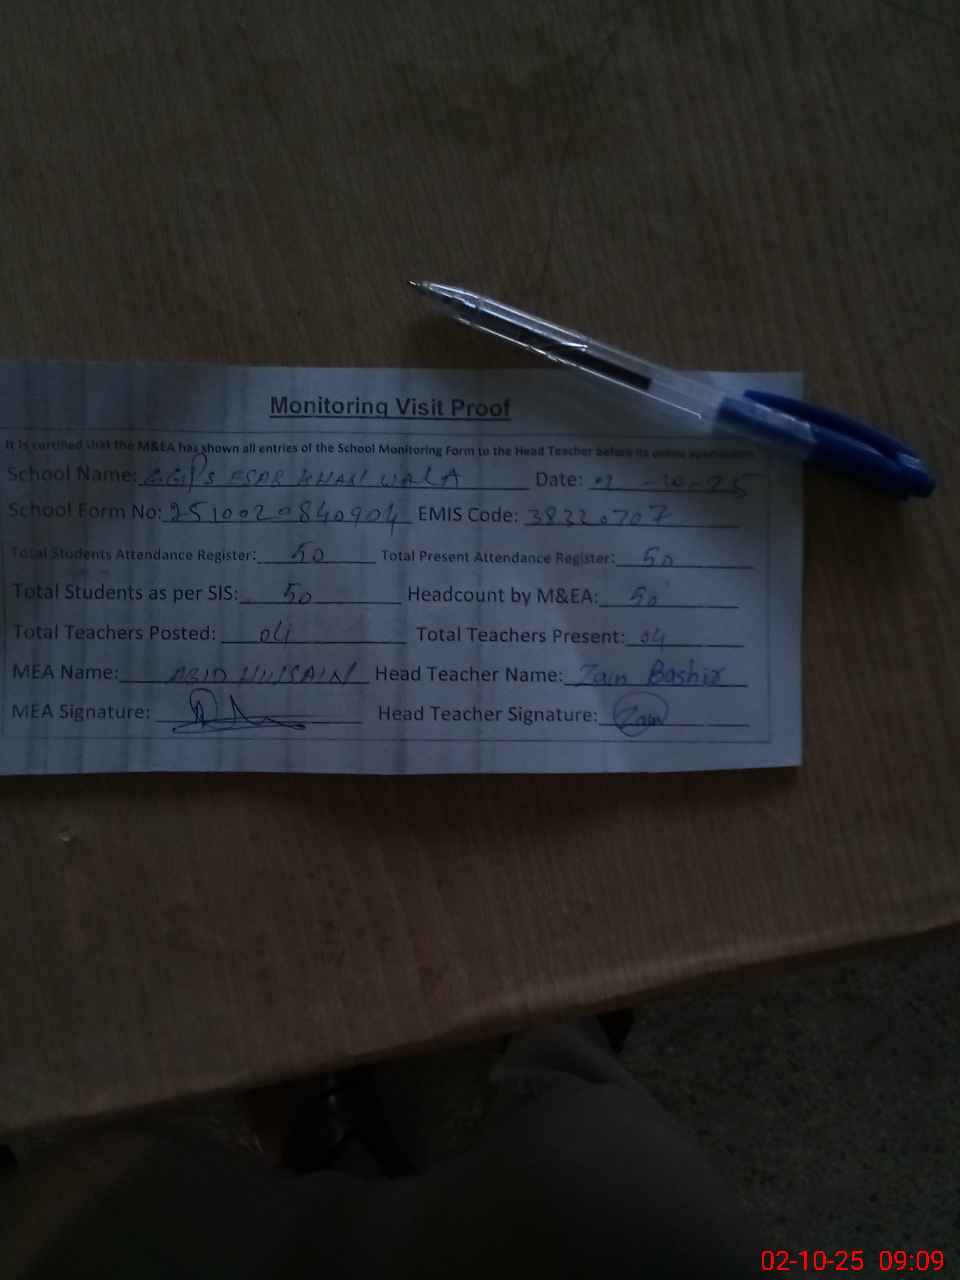 Monitoring Visit Proof
It is certified that the M&EA has shown all entries of the School Monitoring Form to the Head Teacher before its online
School Name: GGPS WALA Date: 02-10-25
School Form No: 2510020840904 EMIS Code: 38320707
Total Students Attendance Register: 50 Total Present Attendance Register: 50
Total Students as per SIS: 50 Headcount by M&EA: 50
Total Teachers Posted: 04 Total Teachers Present: 04
MEA Name: ABID HUSSAIN Head Teacher Name: Zain Bashir
MEA Signature: Head Teacher Signature: Zain
02-10-25 09:09